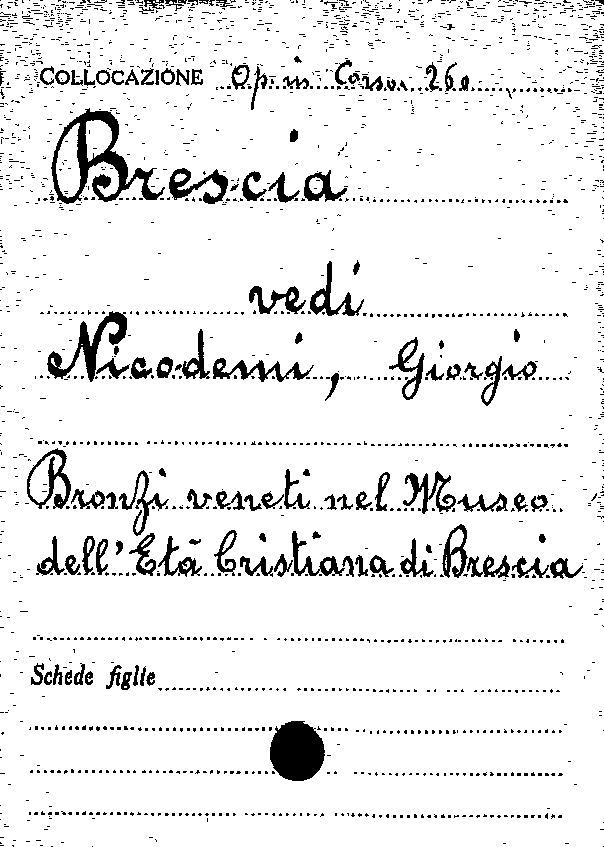 COLLOCAZIONE Op. in Corso. 260
Brescia
vedi
Nicodemi, Giorgio
Bronzi veneti nel Museo
dell'Età Cristiana di Brescia
Schede figlie